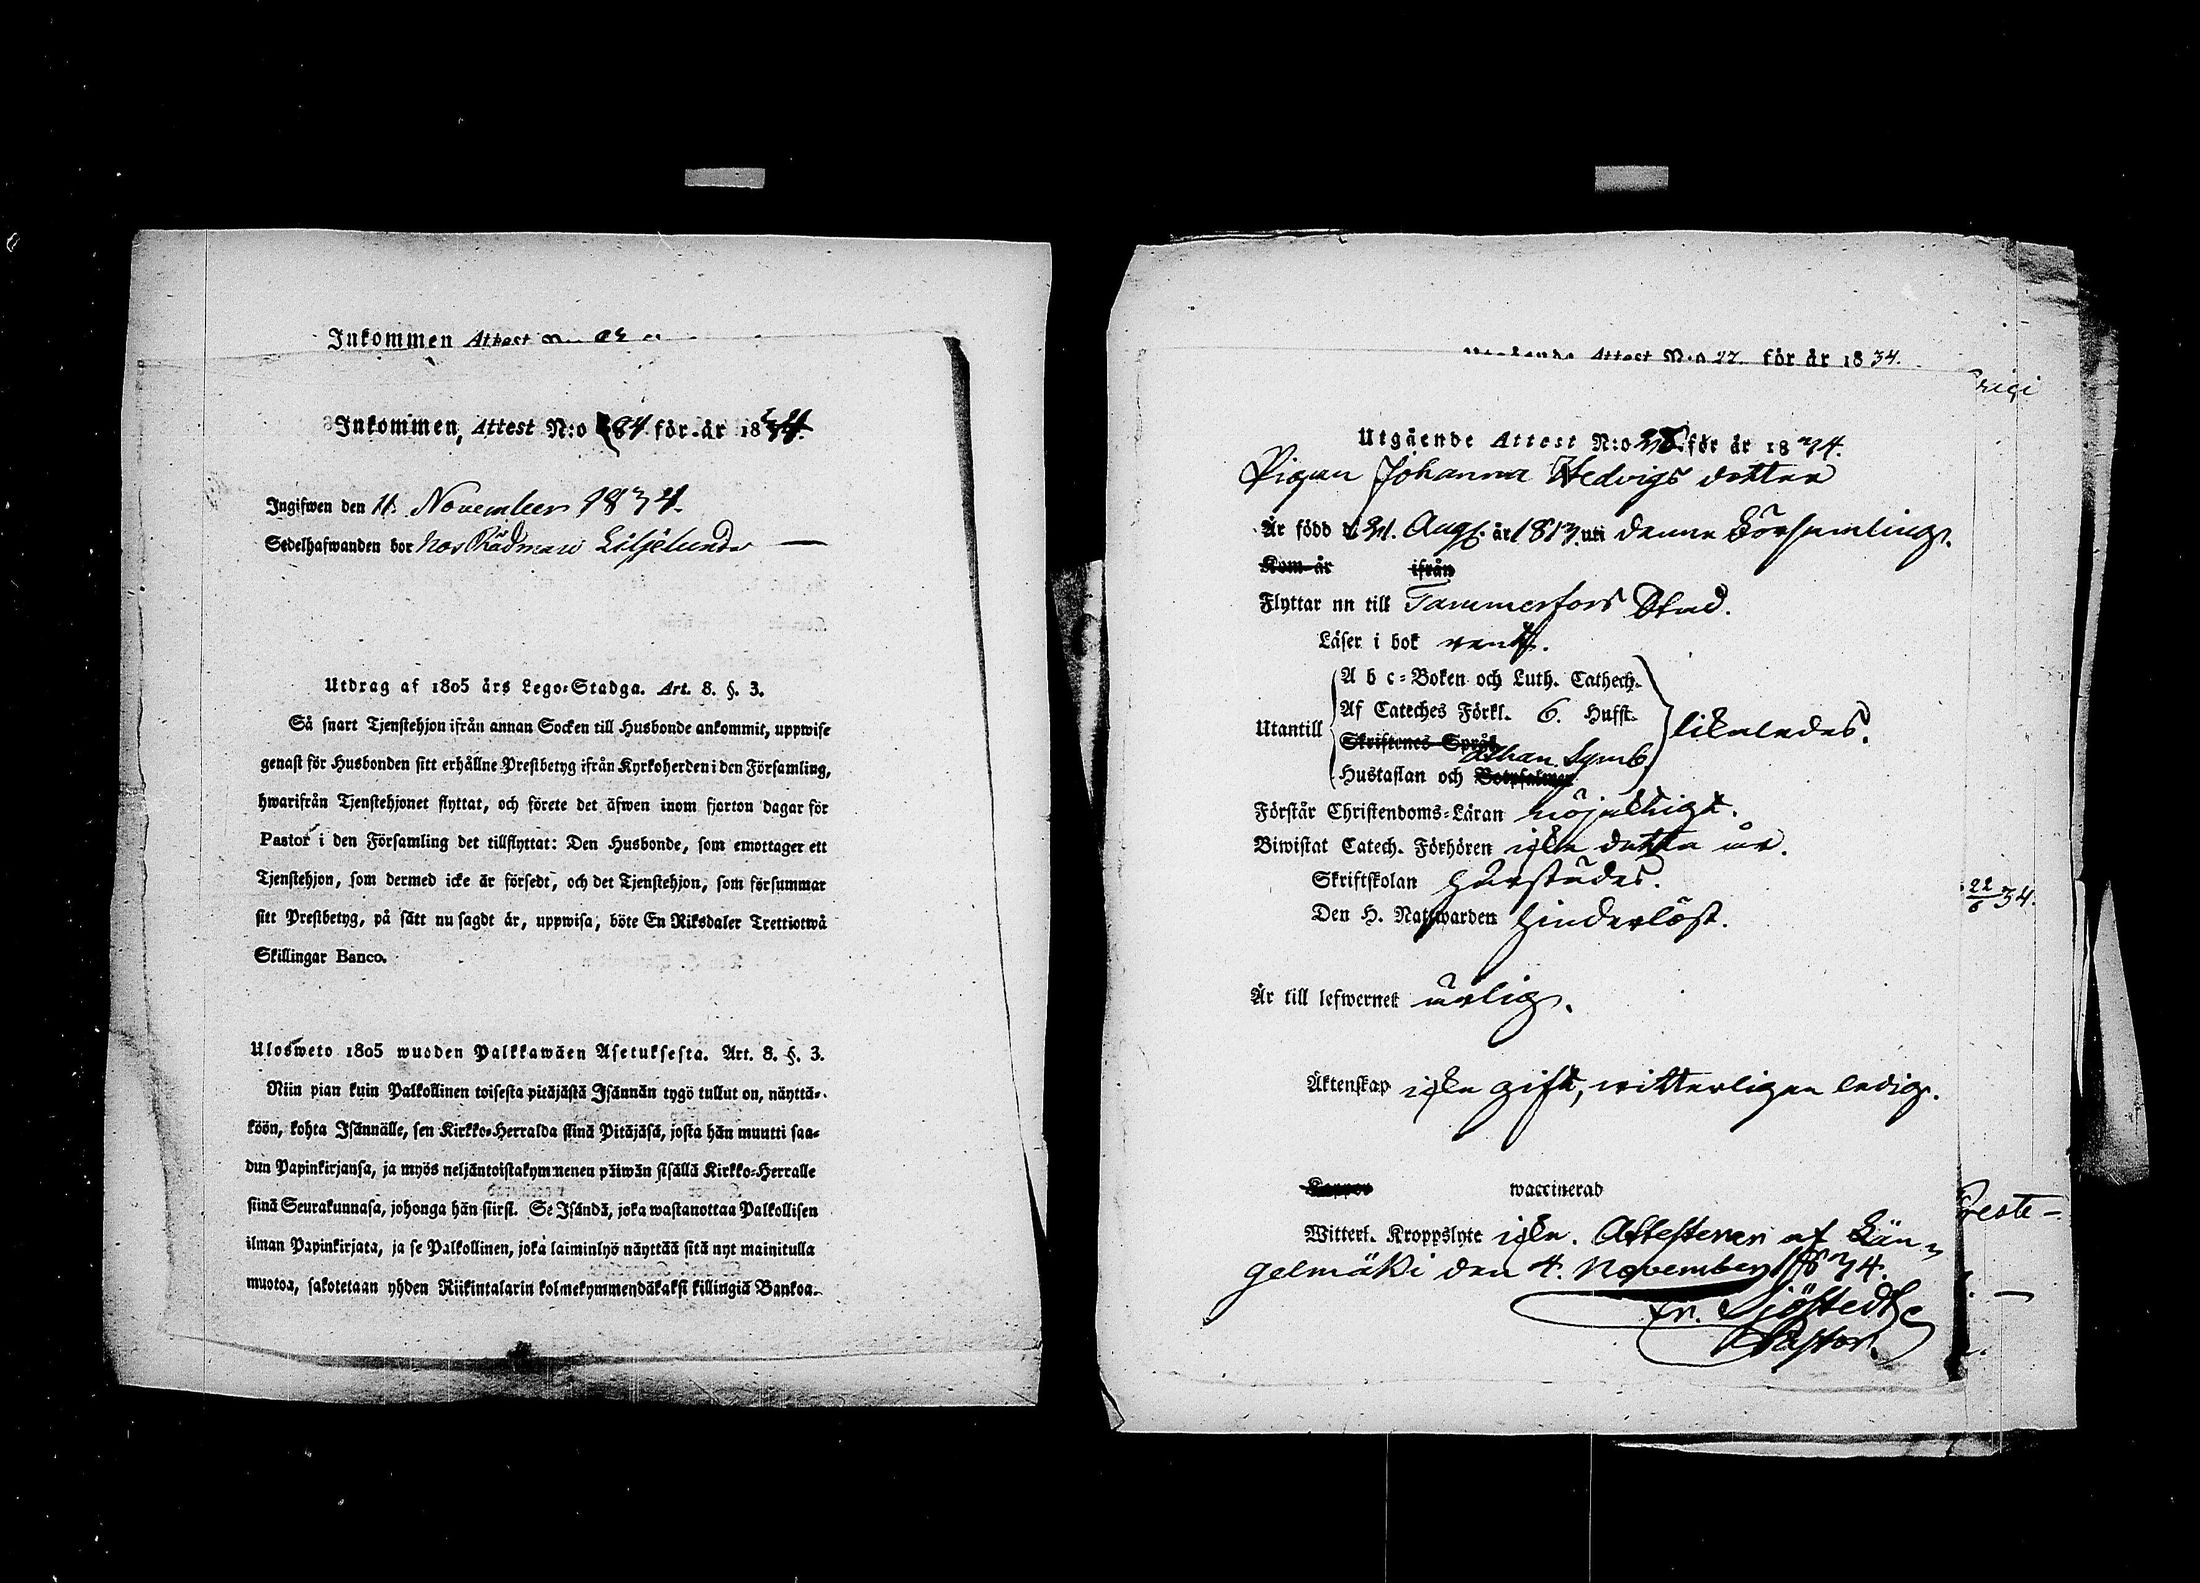 Inkommen Attest
Inkommen, Attest N:o 84 för år 1834.
Ingifwen den 11 November 1834.
Sedelhafwanden bor hos Rådman Liljelund
Utdrag af 1805 års Lego-Stadga. Art. 8. §. 3.
Så snart Tjenstehjon ifrån annan Socken till Husbonde ankommit, uppwise
genast för Husbonden sitt erhållne Prestbetyg ifrån Kyrkoherden i den Församling,
hwarifrån Tjenstehjonet flyttat, och förete det äfwen inom fjorton dagar för
Pastor i den Församling det tillflyttat: Den Husbonde, som emottager ett
Tjenstehjon, som dermed icke är försedt, och det Tjenstehjon, som försummar
sitt Prestbetyg, på sätt nu sagdt är, uppwisa, böte En Riksdaler Trettiotwå
Skillingar Banco.
Ulosweto 1805 wuoden Palkkawäen Asetuksesta. Art. 8. §. 3.
Niin pian kuin Palkollinen toisesta pitäjästä Isännän tygö tullut on, näyttä-
köön, kohta Isännälle, sen Kirkko-Herralda siinä Pitäjäsä, josta hän muutti saa-
dun Papinkirjansa, ja myös neljäntoistakymmenen päiwän sisällä Kirkko-Herralle
siinä Seurakunnasa, johonga hän siirsi. Se Isändä, joka wastanottaa Palkollisen
ilman Papinkirjata, ja se Palkollinen, joka laiminlyö näyttää sitä nyt mainitulla
muotoa, sakotetaan yhden Riikintalarin kolmekymmendäkaksi killingiä Bankoa.
Attest N:o 27. för år 1834.
Utgående Attest N:o 28. för år 1834.
Pigan Johanna Hedvigs dotter
Är född d 31. Aug. år 1813. uti denne Församling.
Kom år ifrån
Flyttar nn till Tammerfors Stad.
Läser i bok rent.
A b c-Boken och Luth. Cathech.
Af Cateches Förkl. 6. Hufst.
Utantill likaledes.
Skriftenes Språk
Athan. Symb.
Hustaflan och Botpsalmer
Förstår Christendoms-Läran nöjaktigt.
Biwistat Catech. Förhören icke detta år.
Skriftskolan härstädes.
Den H. Nattwarden hinderlöst.
22/6 34.
Är till lefwernet ärlig.
Äktenskap icke gift, witterligen ledig.
Koppor waccinerad
Witterl. Kroppslyte icke. Attesterar af Län-
gelmäki den 4. November 1834.
Fr. Sjöstedt
Pastor.